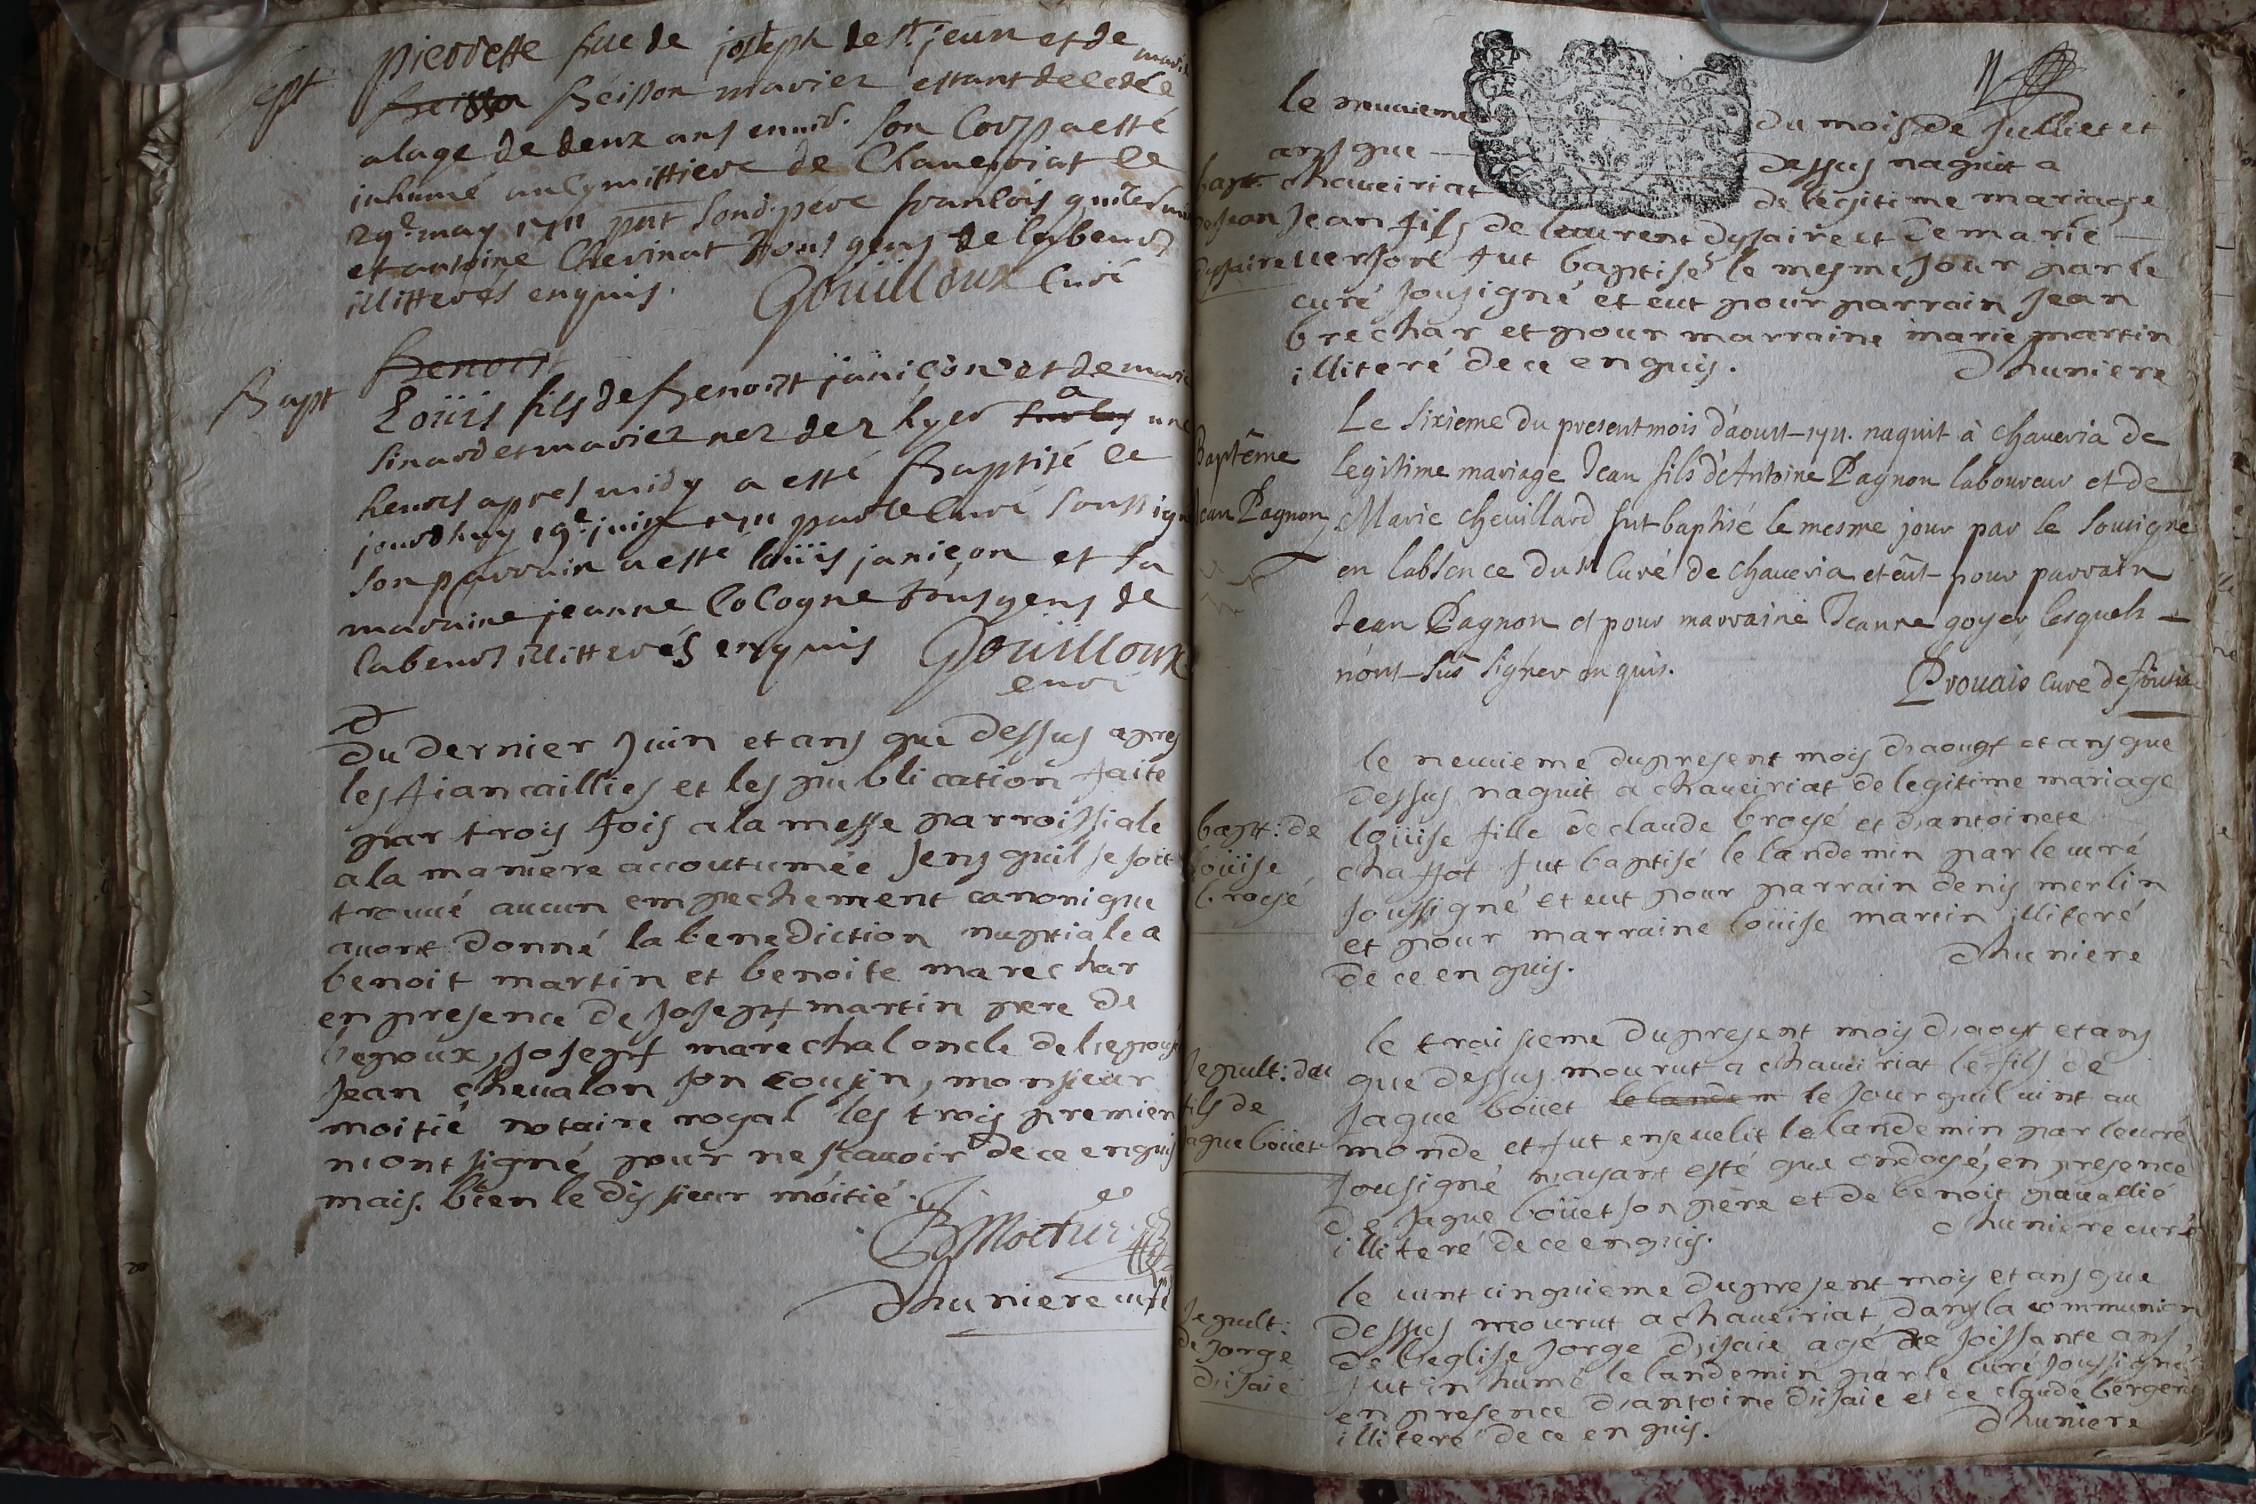 pierrette fille de joseph de st jean et de marie
sept
beisson beisson mariez estant decedée
alage de deux ans enuir. son corps a esté
inhumé au cymittiere de Chaueyriat le
29e may 1711 pnt sond. pere francois
et antoine Cherinat tous gens de labeur
illitteres enquis. Goüilloux Curé
Benoist
Bapt
Loüis fils de Benoist janiçon et de marie
sinardet mariez nez der hyer a une
heures apres midy a esté Baptisé le
jourdhuy 19e juin 1711 par le Curé soussigné
son parrain a esté loüis janiçon et sa
maraine jeanne Cologne tous gens de
labeur illitterés enquis Goüilloux
curé
du dernier Juin et ans que dessus apres
les fiancaillies et les publication faite
par trois fois a la messe parroissiale
a la maniere accoutumée sens quil se soit
trouué aucun empechement canonique
auons donné la benediction nuptiale a
benoit martin et benoite marechar
en presence de Joseph martin pere de
lepoux, Joseph maréchal oncle de lepouse
Jean cheualon son cousin, monsieur
moitié notaire royal les trois premier
niont signé pour ne scauoir de ce enquis
mais bien le dis sieur moitié.
Dhuniere curé
le neuuieme du mois de Julliet et
ans que dessus naquit a
bapt. chaueiriat de legitime mariage
de Jean Jean fils de laurent dysaire et de marie
dysaire uersort fut baptisé le mesme Jour par le
curé sousigné et eut pour parrain Jean
brechar et pour marraine marie martin
illiteré de ce enquis. Dhuniere
Le sixieme du present mois d'aoust 1711. naquit à chaueria de
Baptême
legitime mariage Jean fils d'Antoine Pagnon laboureur et de
Jean Pagnon
Marie cheuillard fut baptisé le mesme jour par le sousigné
en labsence du sr Curé de chaueria et eût pour parrain
Jean Pagnon et pour marraine Jeanne goyer lesquels
n'ont sus signer enquis. Prouais Curé de
le neuuieme du present mois daoust et ans que
dessus naquit a chaueiriat de legitime mariage
bapt: de
loüise fille de claude broyé et dantoinete
loüise
chaffot fut baptisé le landemin par le curé
broyé
soussigné et eut pour parrain denis merlin
et pour marraine loüise martin illiteré
de ce enquis. Dhuniere
le traisieme du present mois daoust et ans
sepult: du
que dessus mourut a chaueiriat le fils de
fils de
Jaque boüet le landem le Jour quil uint au
Jaque boüet
monde et fut enseuelit le landemin par le curé
sousigné nayant esté que ondoyé, en presence
de Jaque boüet son pere et de benoit pauallié
illiteré de ce enquis. Dhuniere curé
le uint cinquieme du present mois et ans que
sepult:
dessus mourut a chaueiriat dans la communion
de Jorge
de leglise Jorge disaie agé de soissante ans
disaie
fut inhumé le landemin par le curé soussigné
en presence dantoine disaie et de claude
illiteré de ce enquis. Dhuniere